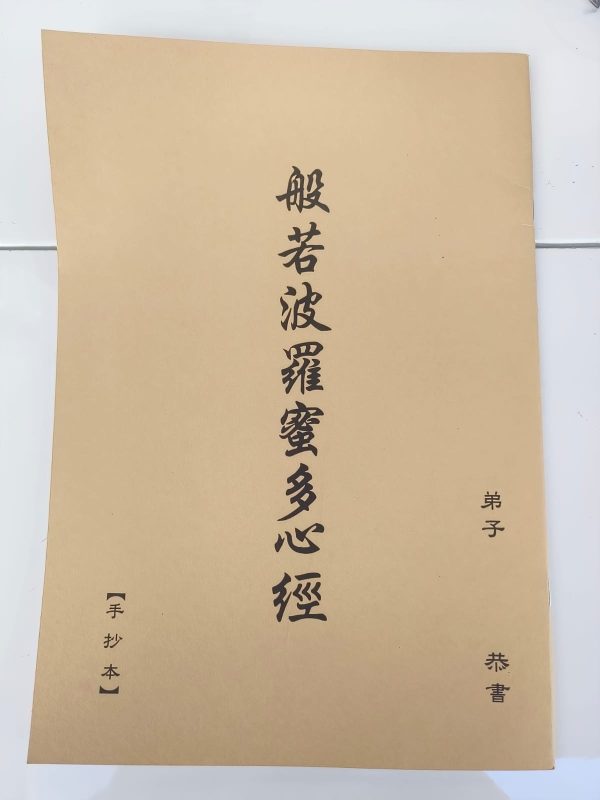 弟子 恭書
般若波羅蜜多心經
【手抄本】